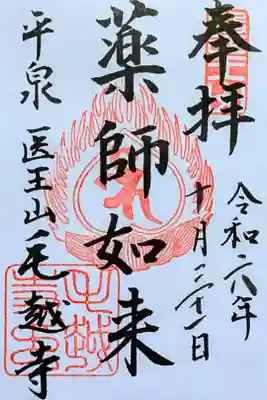 奉拝
令和六年
十月二十一日
薬師如来
平泉 医王山 毛越寺